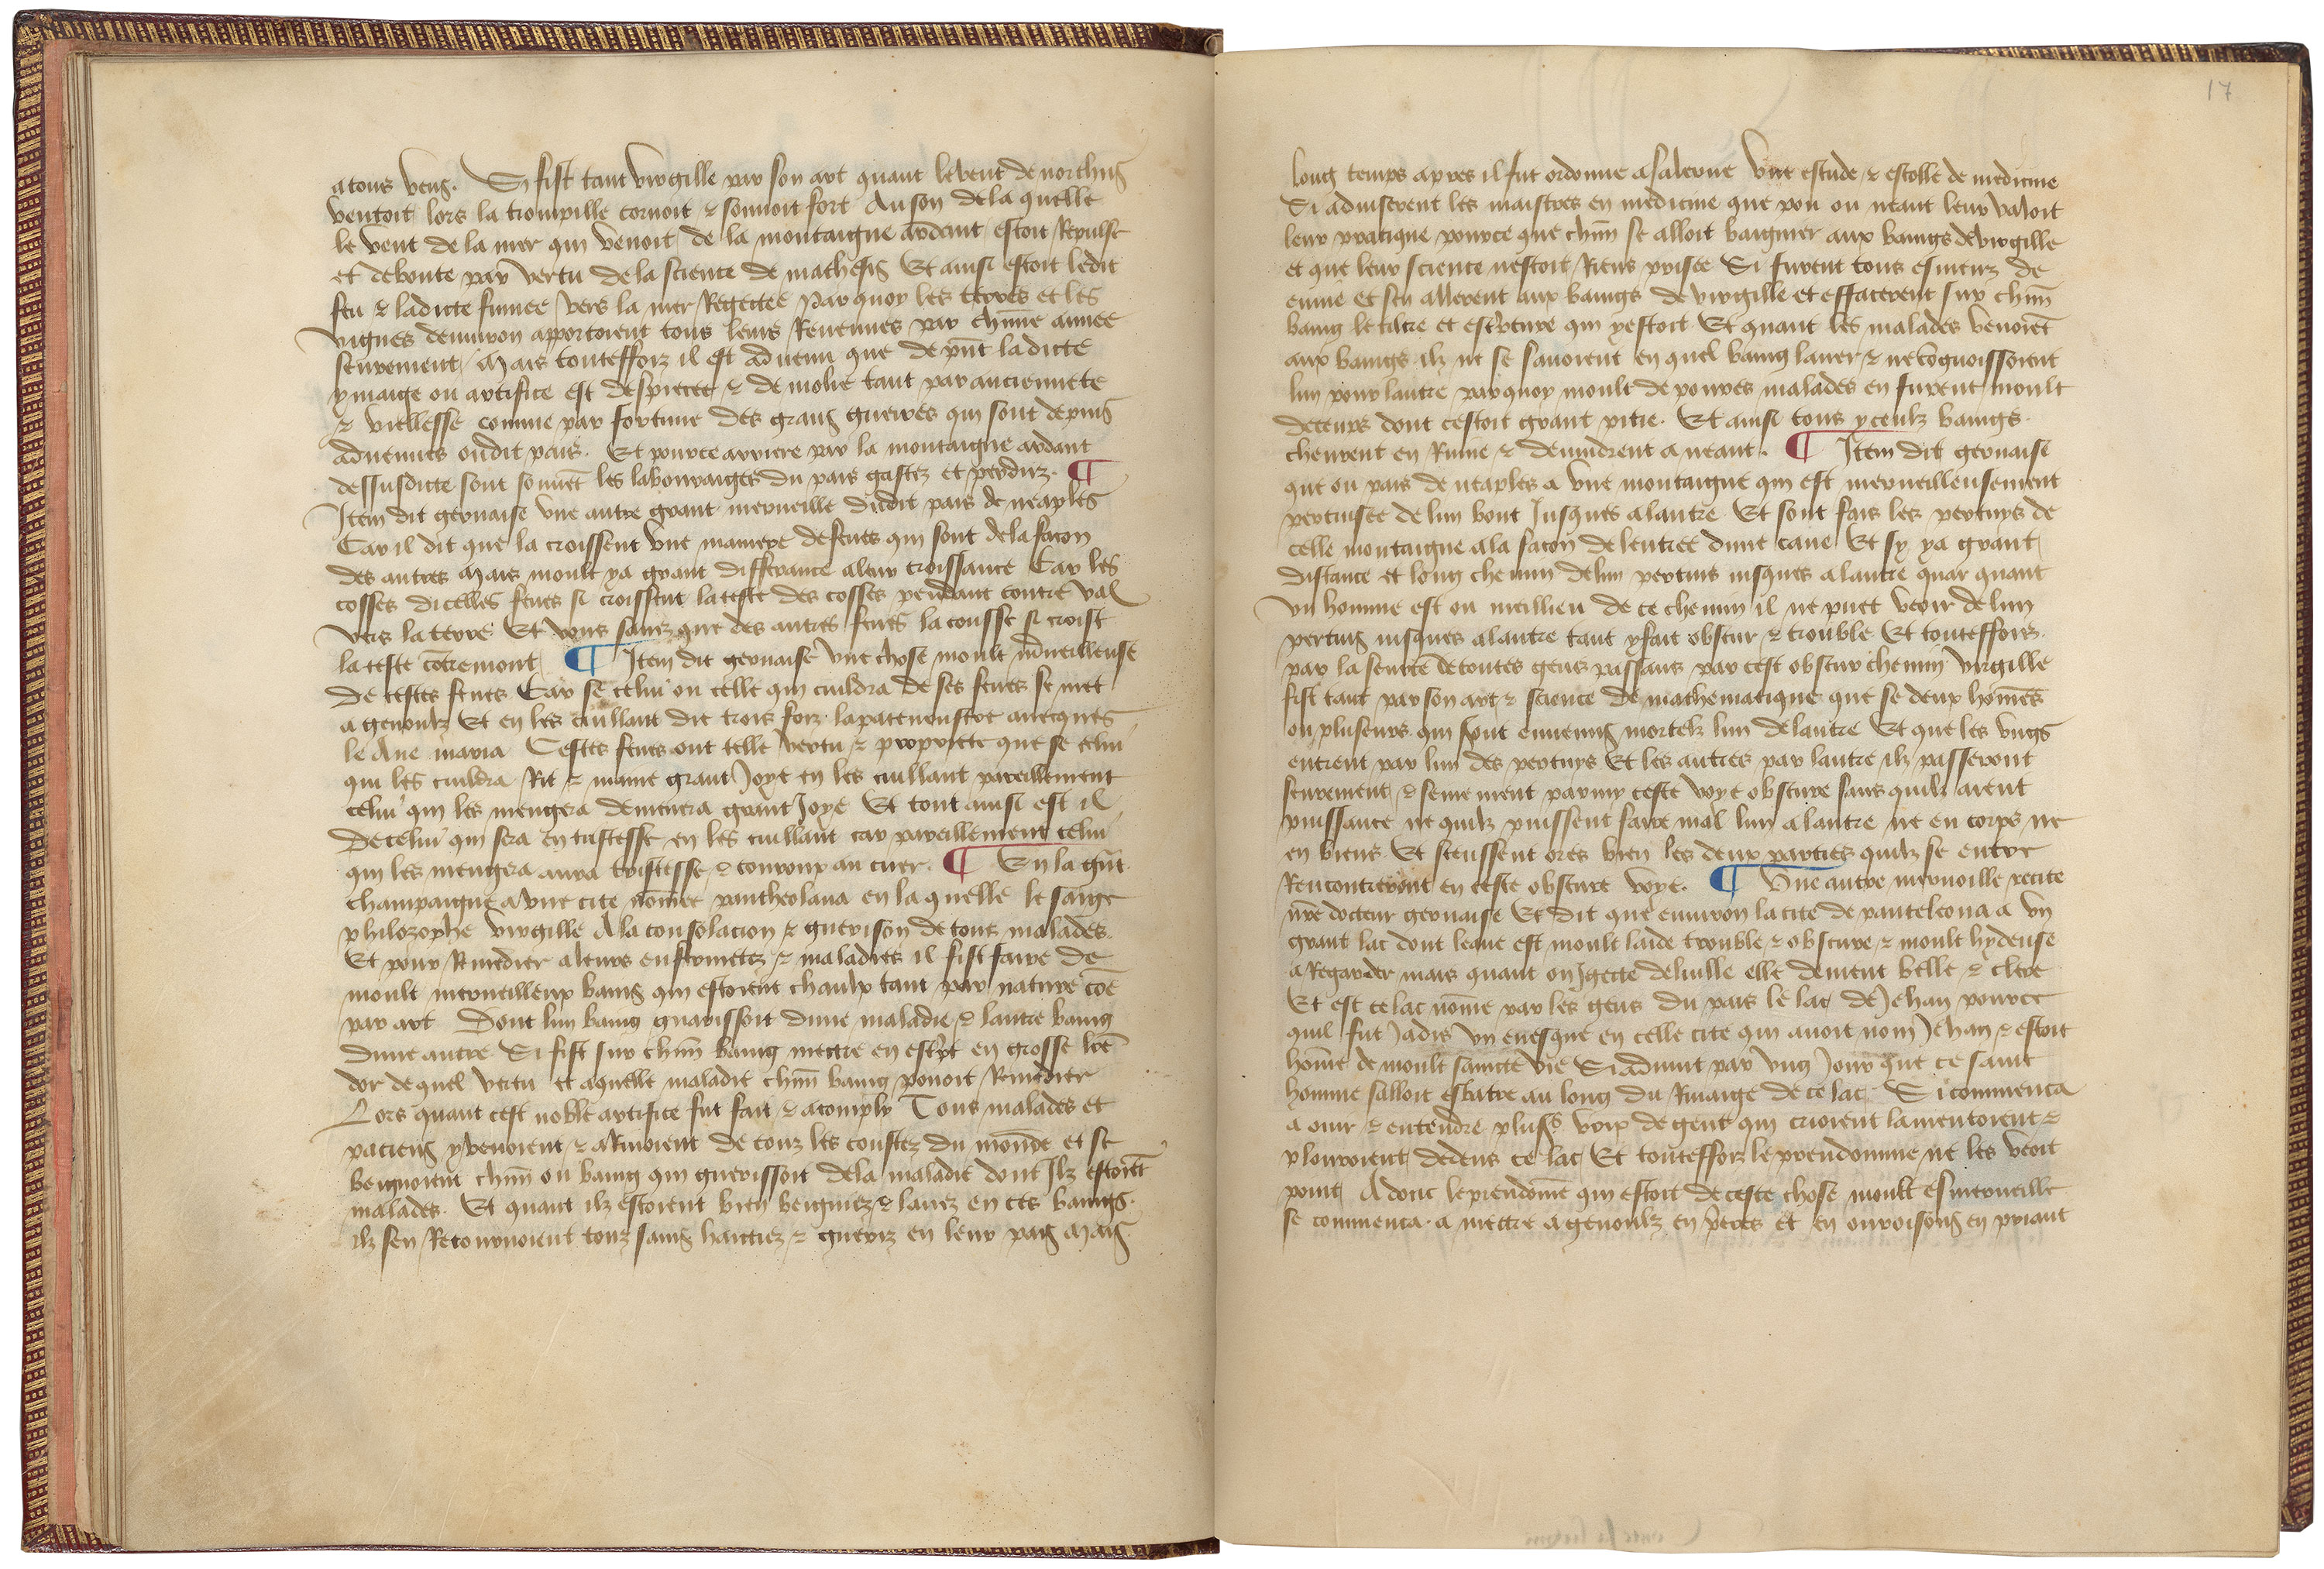 atous vens. Si fist tant virgille par son art quant le vent de northus
ventoit lors la trompille cornoit & sonnoit fort Au son de la quelle
le vent de la mer qui venoit de la montaigne ardant estoit Repulse
et deboute par vertu de la science de mathesis Et ainsi estoit ledit
feu & ladicte fumee vers la mer Regectee Par quoy les terres et les
vignes denuiron apportoient tous leurs Reuenues par chūne annee
seurement Mais touteffoiz il est aduenu que de pn̄t ladicte
ymaige ou artifice est despiecee & demolie tant par anciennete
& viellesse comme par fortune des grans guerres qui sont depuis
aduenues oudit pais. Et pource arriere par la montaigne ardant
dessusdicte sont souuēt les labouraiges du pais gastez et perduz. ¶
Item dit geruaise vne autre grant merueille dudit pais de neaples
Car il dit que la croissent vne maniere de feues qui sont de la facon
des autres Mais moult ya grant differance a leur croissance Car les
cosses dicelles feues si croissent la teste des cosses pendant contre val
vers la terre Et vous sauez que des autres feues la cousse si croist
la teste cōtremont ¶ Item dit geruaise vne chose moult m̄ueilleuse
de cestes feues Car se celui ou celle qui cuildra de ses feues se met
a genoulz Et en les cuillant dit trois foiz la patenostre auecques
le Aue maria Cestes feues ont telle vertu & propriete que se celui
qui les cuildra Rit & maine grant Joye en les cuillant pareillement
celui qui les mengera demenra grant Joye Et tout ainsi est il
De celui qui sera en tristesse en les cuillant car pareillement celui
qui les mengera aura tristesse & courroux au cuer. ¶ En la gn̄t
champaigne a vne cite nōmee pantheolana en la quelle le saige
philozophe virgille A la consolacion & guerison de tous malades
Et pour Remedier a leurs enfermetez & maladies il fist faire de
moult merueilleux baings qui estoient chaulx tant par nature cōe
par art Dont lun baing guarissoit dune maladie & lautre baing
dune autre Si fist sur chūn baing mettre en esc̄pt en grosse lr̄e
dor de quel vertu et a quelle maladie chūn baing pouoit Remedier
Lors quant cest noble artifice fut fait & acomply Tous malades et
paciens y venoient & aRiuoient de touz les coustez du monde et se
beignoient chūn ou baing qui guerissoit de la maladie dont Ilz estoiēt
malades. Et quant ilz estoient bien beignez & lauez en ces baings
ilz sen Retournoient touz sains haitiez & gueriz en leur pais Mais
17
long temps apres il fut ordonne a salerne vne estude & escolle de medicine
Si aduiserent les maistres en medicine que pou ou neant leur valoit
leur pratique pource que chūn se alloit baigner aux baings de virgille
et que leur science nestoit Riens prisee Si furent tous esmeuz de
enuie et sen allerent aux baings de virgille et effacerent sur chūn
baing le tiltre et esc̄pture qui y estoit Et quant les malades venoiēt
aux baings ilz ne se sauoient en quel baing lauer & ne cōgnoissoient
lun pour lautre par quoy moult de poures malades en furent moult
deceups dont cestoit grant pitie. Et ainsi tous yceulx baings
cheurent en Ruine & deuindrent a neant. ¶ Item dit geruaise
que ou pais de neaples a vne montaigne qui est merueilleusement
pertuisee de lun bout Jusques a lautre Et sont fais les pertuys de
celle montaigne a la facon de lentree dune caue Et sy ya grant
distance et long chemin de lun pertuis iusques a lautre quar quant
vn homme est ou meillieu de ce chemin il ne puet veoir de lun
pertuis iusques a lautre tant y fait obscur & trouble Et touteffois
par la seurte de toutes gens passans par cest obscur chemin virgille
fist tant par son art & science de mathematique que se deux hōmes
ou pluseurs qui sont ennemis mortelz lun de lautre Et que les vngs
entrent par lun des pertuys Et les autres par lautre ilz passeront
seurement & seinement parmy ceste voye obscure sans quilz aient
puissance ne quilz puissent faire mal lun a lautre ne en corps ne
en biens Et sceussent ores bien les deux parties quilz se entre
Rencontreront en ceste obscure voye. ¶ Vne autre merueille recite
nr̄e docteur geruaise Et dit que enuiron la cite de panteleona a vn
grant lac dont leaue est moult laide trouble & obscure & moult hydeuse
a Regarder mais quant on Jgecte de luille elle deuient belle & clere
Et est ce lac nōme par les gens du pais le lac de Jehan pource
quil fut Jadis vn euesque en celle cite qui auoit nom Jehan & estoit
hōme de moult saincte vie Si aduint par vng Jour que ce saint
homme salloit esbatre au long du Riuaige de ce lac Si commenca
a ouir & entendre plus's voix de gent qui crioient lamentoient &
plouroient dedens ce lac Et touteffoiz le preudomme ne les veoit
point Adonc le preudōme qui estoit de ceste chose moult esmerueille
se commenca a mettre a genoulz en p̄eres et en ouroisons en priant